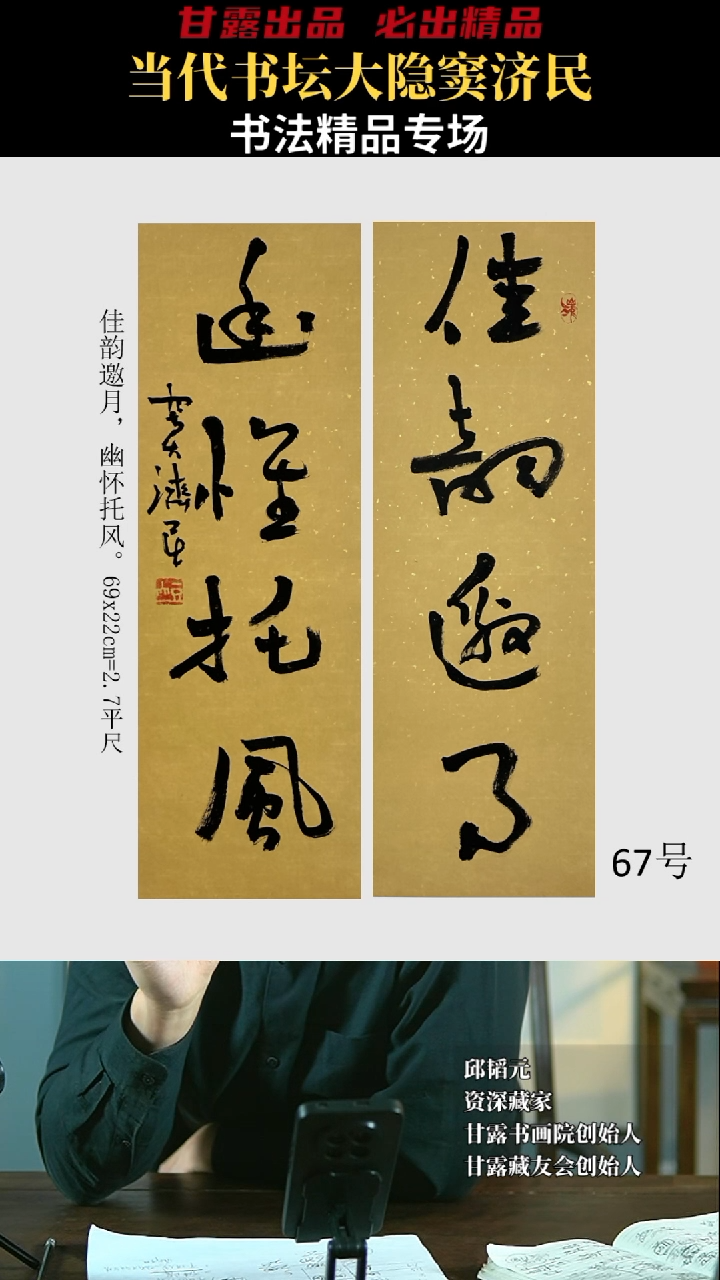 甘露出品 必出精品
当代书坛大隐窦济民
书法精品专场
佳韵邀月
幽怀托风
窦济民
佳韵邀月，幽怀托风。69x22cm=2.7平尺
67号
邱韬元
资深藏家
甘露书画院创始人
甘露藏友会创始人